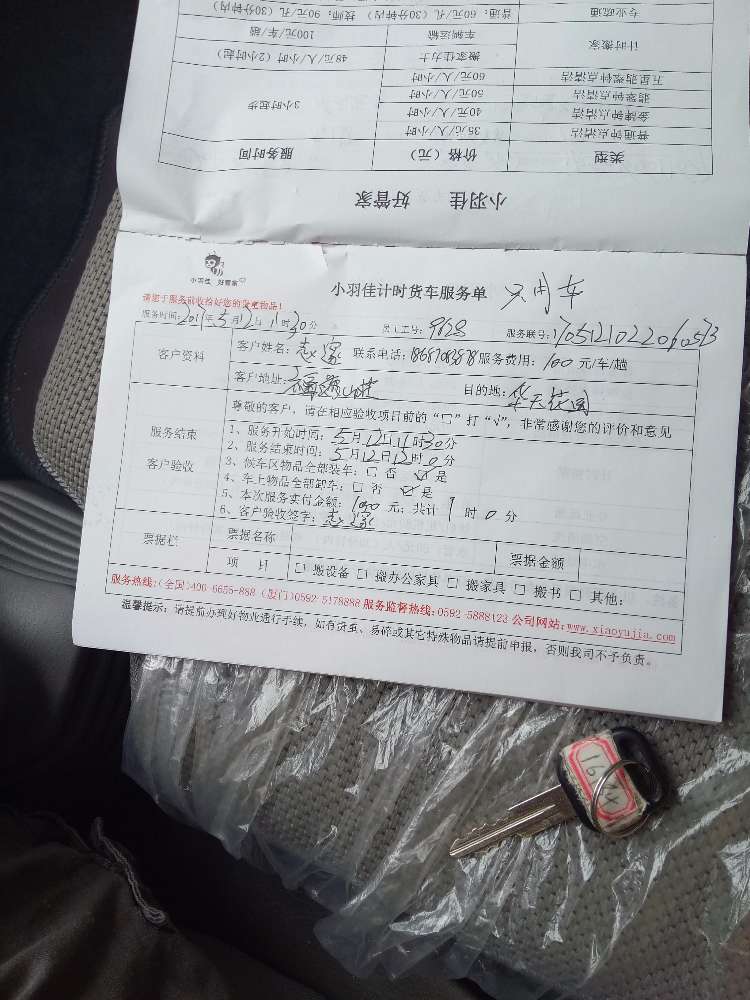 小羽佳 好管家
类型 价格（元） 服务时间
普通钟点清洁 35元/人/小时 3小时起步
金牌钟点清洁 40元/人/小时
翡翠钟点清洁 50元/人/小时
五星翡翠钟点清洁 60元/人/小时
计时搬家 搬家佳力士 48元/人/小时（2小时起）
车辆运输 100元/车/趟
专业疏通 普通：60元/孔（30分钟内） 技师：90元/孔（30分钟内）
小羽佳 好管家
小羽佳计时货车服务单 只用车
请您于服务前收拾好您的贵重物品！
服务时间：2017年5月12日11时30分 员工工号：9828 服务联号：
客户资料 客户姓名： 联系电话： 服务费用：100元/车/趟
客户地址： 目的地：华天花园
尊敬的客户，请在相应验收项目前的“□”打“√”，非常感谢您的评价和意见
服务结束 客户验收
1、服务开始时间：5月12日11时30分
2、服务结束时间：5月12日12时0分
3、候车区物品全部装车：□ 否 ☑ 是
4、车上物品全部卸车：□ 否 ☑ 是
5、本次服务实付金额：100元；共计1时0分
6、客户验收签字：
票据栏 票据名称 票据金额
项 目 □ 搬设备 □ 搬办公家具 □ 搬家具 □ 搬书 □ 其他：
服务热线：(全国)400-6655-888 (厦门)0592-5178888 服务监督热线：0592-5888123 公司网站：www.xiaoyujia.com
温馨提示：请提前办理好物业通行手续，如有贵重、易碎或其它特殊物品请提前申报，否则我司不予负责。